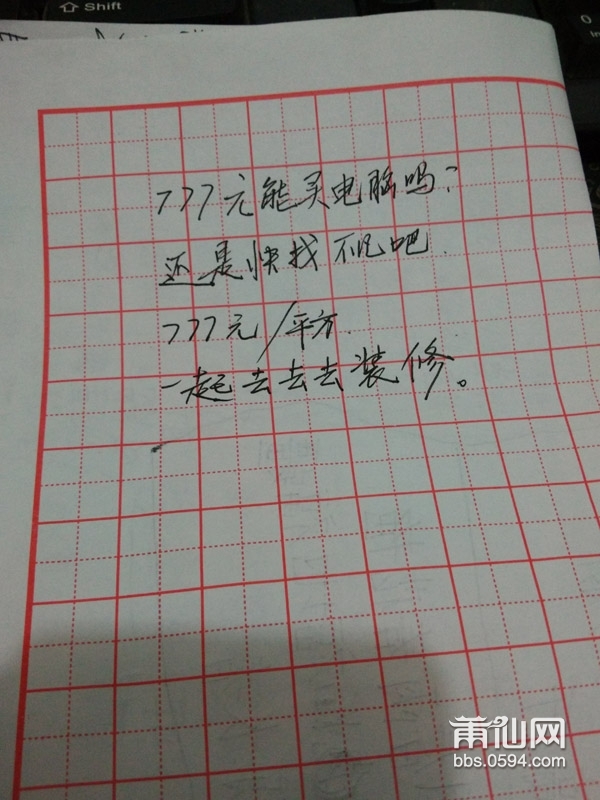 Shift
777元能买电脑吗?
还是快找不凡吧.
777元/平方.
一起去去去装修。
莆仙网
bbs.0594.com